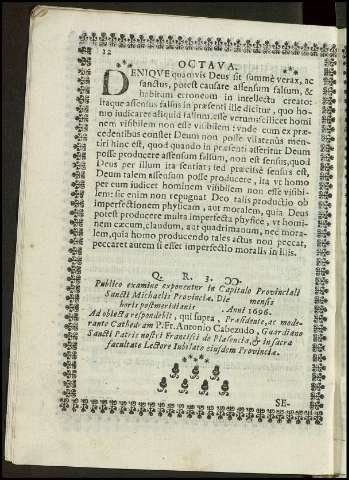 12
OCTAVA.
DENIQVE quamvis Deus sit summè verax, ac
sanctus, potest causare assensum falsum, &
habitum erroneum in intellectu creato:
itaque assensus falsus in præsenti ille dicitur, quo ho-
mo iudicaret aliquid falsum, esse verum: scilicet homi
nem visibilem non esse visibilem: vnde cum ex præ-
cedentibus constet Deum non posse vllatenùs men-
tiri hinc est, quod quando in præsenti asseritur Deum
posse producere assensum falsum, non est sensus, quod
Deus per illum ita sentiat; sed præcisè sensus est,
Deum talem assensum posse producere, ita vt homo
per eum iudicet hominem visibilem non esse visibi-
lem: sic enim non repugnat Deo talis productio ob
imperfectionem physicam, aut moralem, quia Deus
potest producere multa imperfecta physice, vt homi-
nem cæcum, claudum, aut quadrimanum, nec mora-
lem, quia homo producendo tales actus non peccat,
peccaret autem si esset imperfectio moralis in illis.
Q. R. 3.
Publico examine exponentur in Capitulo Provinciali
Sancti Michaelis Provinciæ. Die mensis
horis postmeridianis Anni 1696.
Ad obiecta respondebit, qui supra, Præsidente, ac mode-
rante Cathedram P. Fr. Antonio Cabezudo, Guardiano
Sancti Patris nostri Francisci de Plasencia, & in sacra
facultate Lectore Iubilato eiusdem Provinciæ.
SE-